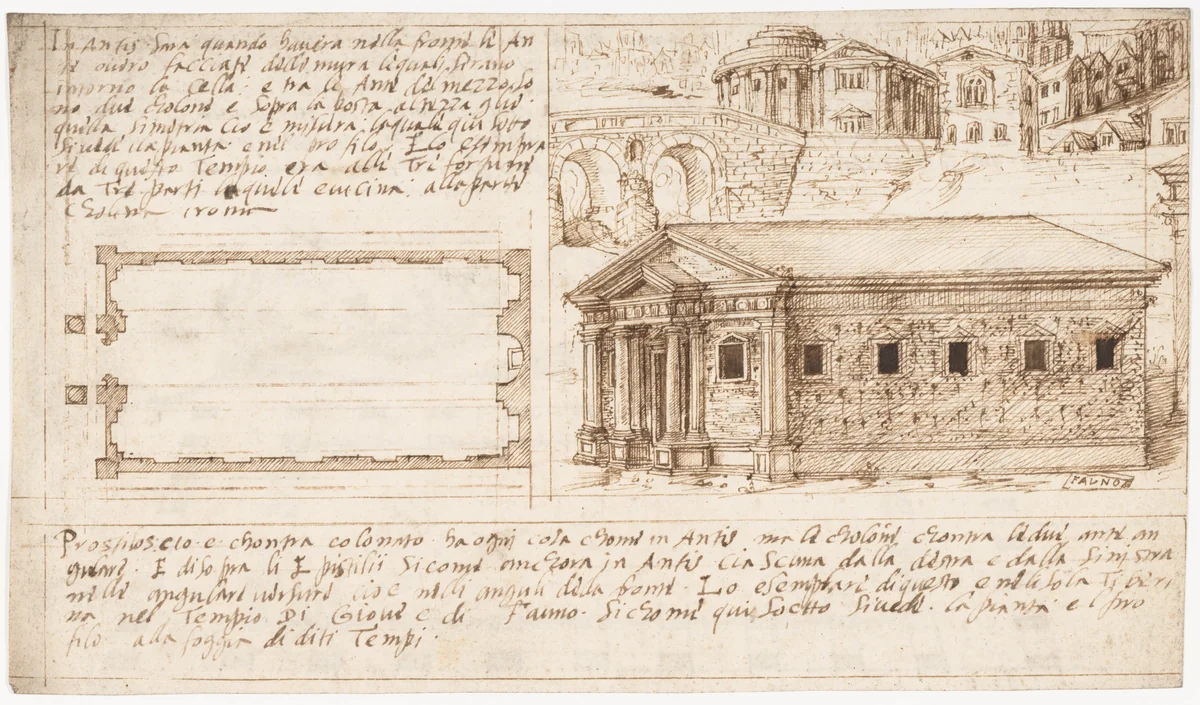 In Antis sara quando havera nella fronte le An
te overo facciate delle mura lequali serano
intorno la Cella e tra le Ante del mezzo, so
no due cholone e sopra la
quella simetria cio è misura laquale qui sotto
si vede ila pianta e nel profilo. Lo esempra
re di questo Tempio era alle Tre fortune
da Tre parti laquale e vicina alla porta
Cholina
FAVNO
Prostilos cio e chontra colonato ha ogni cosa chome in Antis ma le cholone chontra le due ante an
gulari. E di sopra li Epistilii sicome anchora in Antis Ciascuna dalla destra e dalla sinistra
nelle angulare versure cio è nelli anguli della fronte. Lo esemplare di questo e nel isola Tiberi
na nel Tempio Di Giove e di Fauno. Sichome qui soetto si vede la pianta e l pro
filo alla foggia di diti Tempi.